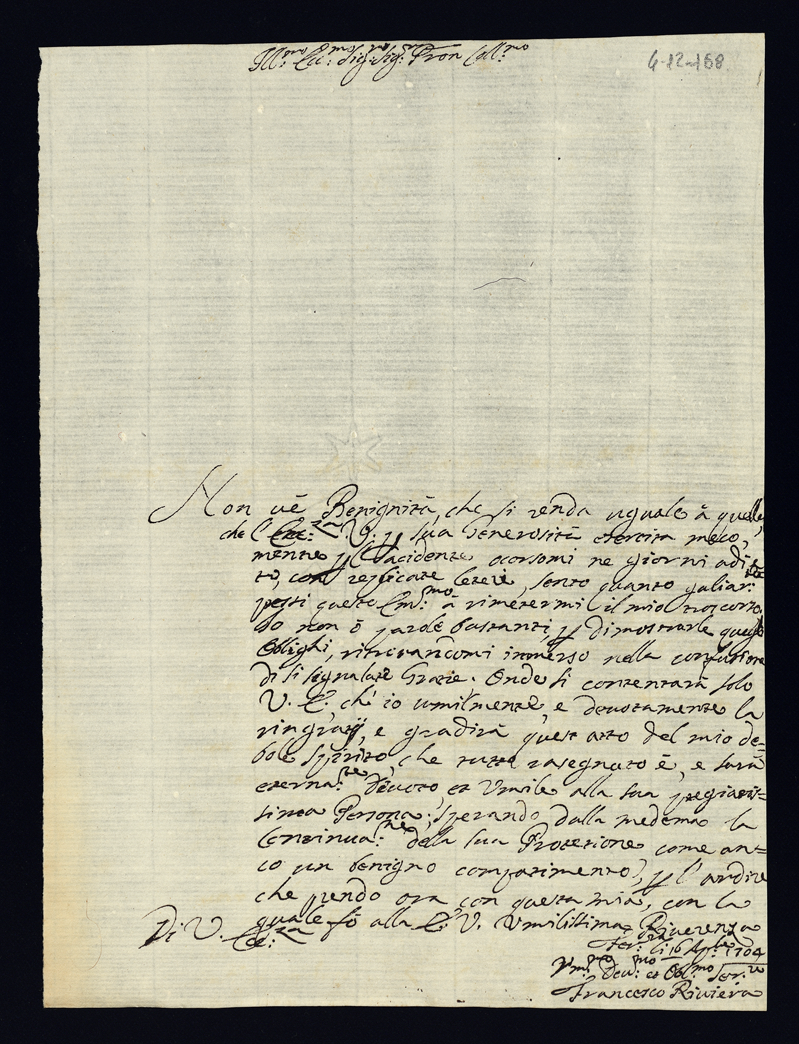 Ill:mo Ecc:mo Sig: Sig:re Pron Coll:mo
4-12-168
Non v'è Benignità, che si renda uguale à quella,
che l'Ecc:za V. p sua Generosità esercita meco,
mentre p l'acidente ocorsomi ne giorni adie
to, con replicate letere, sento quanto
questo Em:mo à rimetermi il mio trascorso
Io non ò parole bastanti p dimostrarle quegl
Oblighi, ritrovandomi immerso nella confusione
di sì segnalate Grazie. Onde si contentarà solo
V. E. ch'io umilmente, e devotamente la
ringratij, e gradirà quest atto del mio de=
bole spirito, che tutto rasegnato è, e sarà
eterna:te Devoto, et Umile alla sua pregiatis=
sima Persona; sperando dalla medema la
Continua:ne della sua Protezione come an=
co un benigno compatimento, p l'ardire
che prendo ora con questa mia, con la
quale fò alla E. V. Umilissima Riverenza
Di V. Ecc:za
Fer:ra li 16 Ap:le 1704
Um:mo Dev:mo et Obl:mo Ser:re
Francesco Riviera